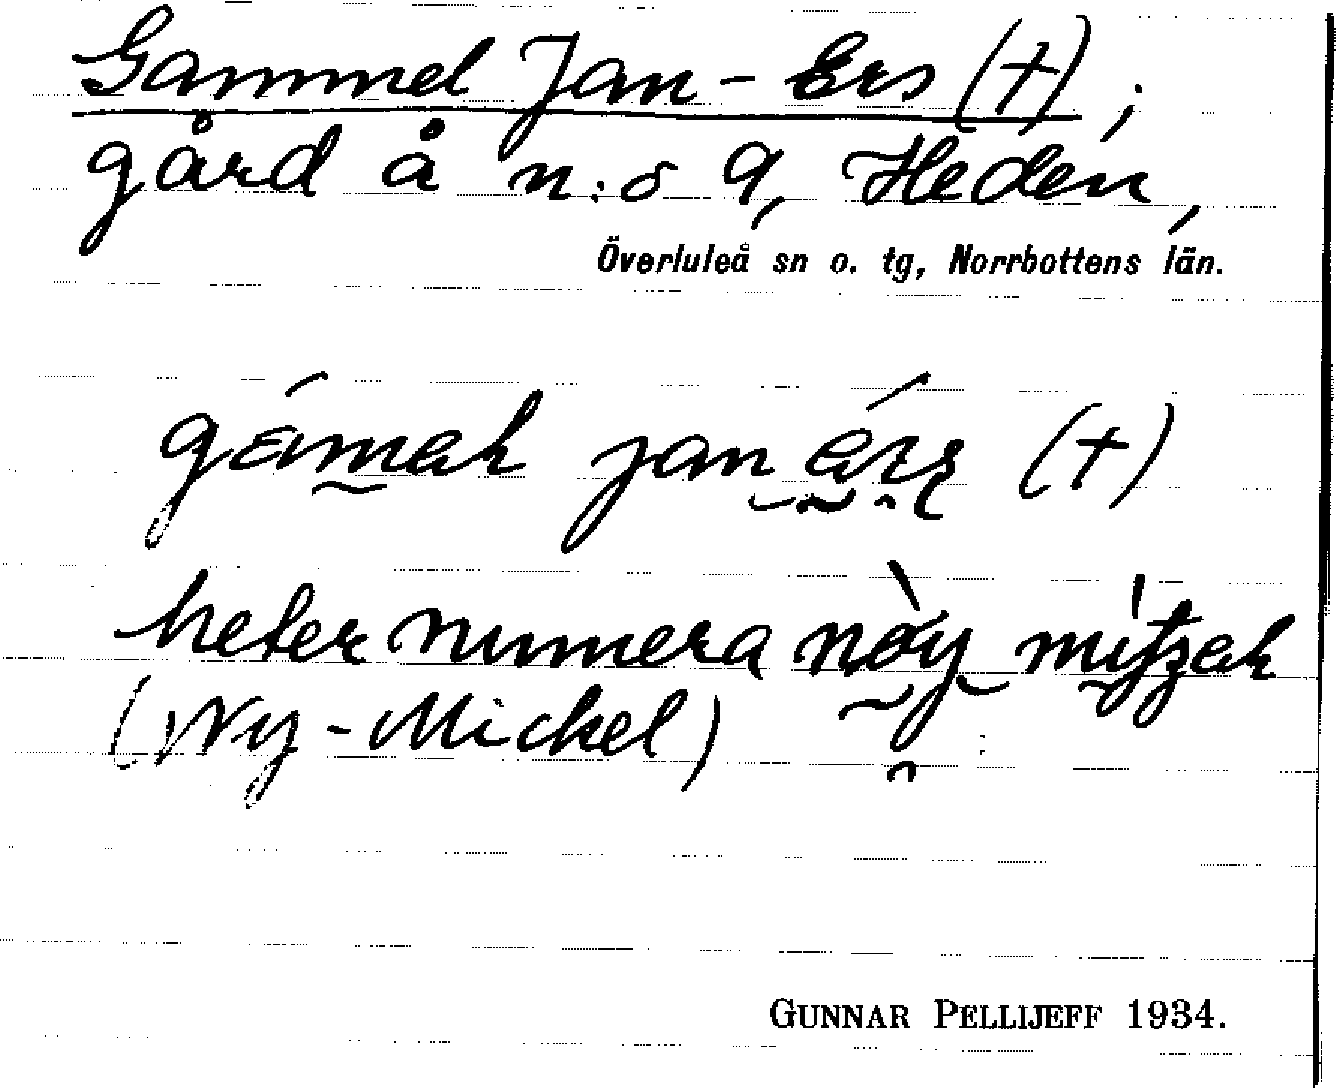 Gammel Jan-Ers (†) ;
gård å n:o 9, Heden,
Överluleå sn o. tg, Norrbottens län.
gámak jan (†)
heter numera nòy
(Ny-Mickel)
GUNNAR PELLIJEFF 1934.